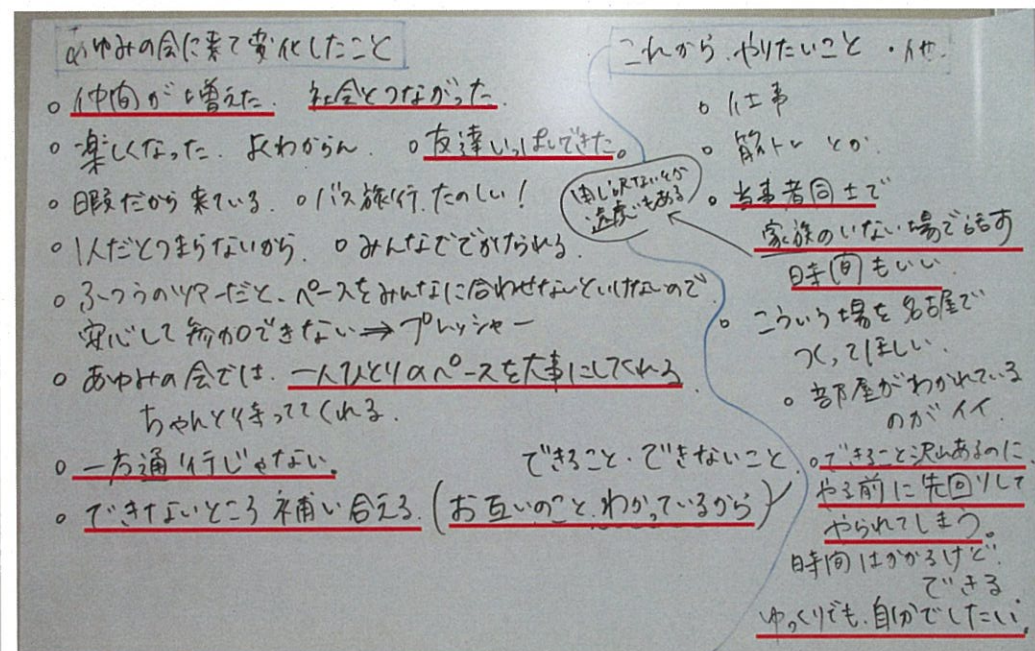 あゆみの会に来て変化したこと
○仲間が増えた. 社会とつながった.
○楽しくなった. よくわからん. ○友達いっぱいできた。
○暇だから来ている. ○バス旅行. たのしい!
○1人だとつまらないから. ○みんなででかけられる.
○ふつうのツアーだと、ペースをみんなに合わせないといけないので.
安心して参加できない⇒プレッシャー
○あゆみの会では. 一人ひとりのペースを大事にしてくれる.
ちゃんと待っててくれる.
○一方通行じゃない。
できること・できないこと.
○できないところ補い合える.(お互いのこと.わかっているから)
これから.やりたいこと ・他.
○仕事
○筋トレ とか.
○当事者同士で
家族のいない場で話す
時間もいい.
申し訳ないとか
遠慮もある
○こういう場を名古屋で
つくってほしい.
○部屋がわかれている
のがイイ.
○できること沢山あるのに、
やる前に先回りして
やられてしまう。
時間はかかるけど.
できる.
ゆっくりでも.自分でしたい。